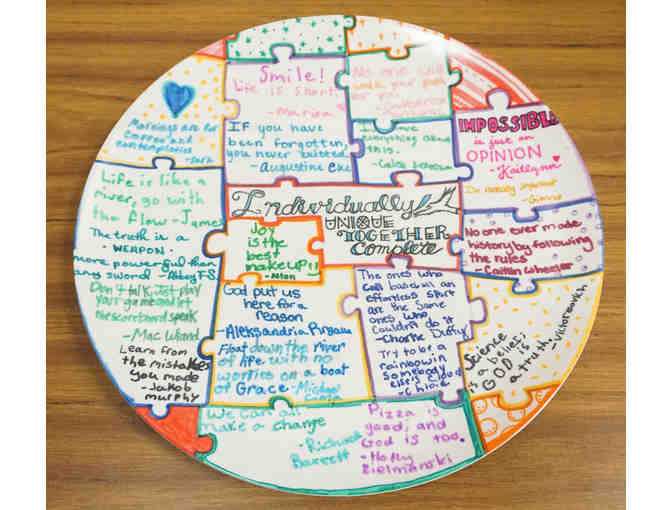 Smile!
Life is short
- Marina
No one will
walk your path
for you.
IF you have
been forgotten,
you never existed.
- Augustine
everything about
this.
IMPOSSIBLE
is just an
OPINION
- Kaitlynn
Mornings are for
coffee and
contemplation
Life is like a
river, go with
the flow - James
The truth is a
WEAPON.
more powerful than
any sword - Abbey F.S.
Don't talk, Just play
your game and let
the scoreboard speak
- Mac
Learn from
the mistakes
you made
- Jakob
murphy
Individually
UNIQUE
TOGETHER
Complete
Joy
is the
best
makeup!!
God put us
here for a
reason
- Aleksandria
Float down the river
of life with no
worries on a boat
of Grace - Michael
The ones who
call baseball an
effortless sport
are the same
ones who
couldn't do it
- Charlie Duffy
Try to be a
rainbow in
somebody
else's cloud
- Chloe
No one ever made
history by following
the rules
- Caitlin Wheeler
Science
is a belief;
GOD is
a truth.
We can all
make a change
- Richard
Barrett
Pizza is
good, and
God is too.
- Holly
Zielmanski